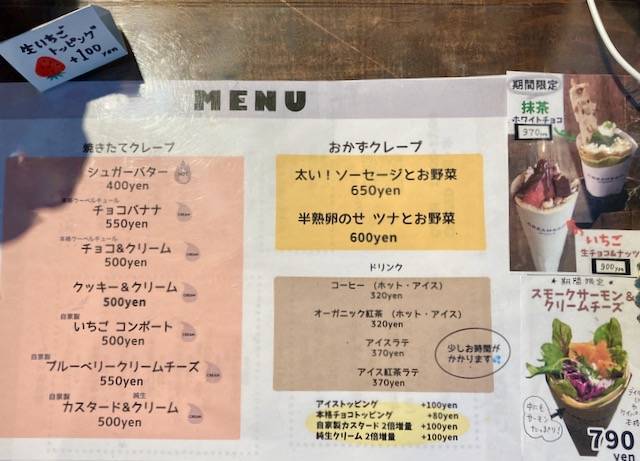 生いちご
トッピング
+100yen
MENU
焼きたてクレープ
シュガーバター
HOT
400yen
チョコバナナ
CREAM
550yen
本格クーベルチュール
チョコ&クリーム
CREAM
500yen
クッキー&クリーム
CREAM
500yen
自家製
いちご コンポート
CREAM
500yen
自家製
ブルーベリークリームチーズ
CREAM
550yen
自家製 純生
カスタード&クリーム
CREAM
500yen
おかずクレープ
太い!ソーセージとお野菜
650yen
半熟卵のせ ツナとお野菜
600yen
ドリンク
コーヒー (ホット・アイス)
320yen
オーガニック紅茶 (ホット・アイス)
320yen
アイスラテ
370yen
アイス紅茶ラテ
370yen
少しお時間が
かかります
アイストッピング +100yen
本格チョコトッピング +80yen
自家製カスタード 2倍増量 +100yen
純生クリーム 2倍増量 +100yen
期間限定
抹茶
ホワイトチョコ
970yen
いちご
生チョコ&ナッツ
900yen
期間限定
スモークサーモン&
クリームチーズ
中にも
サーモン
たっぷり!
790
yen